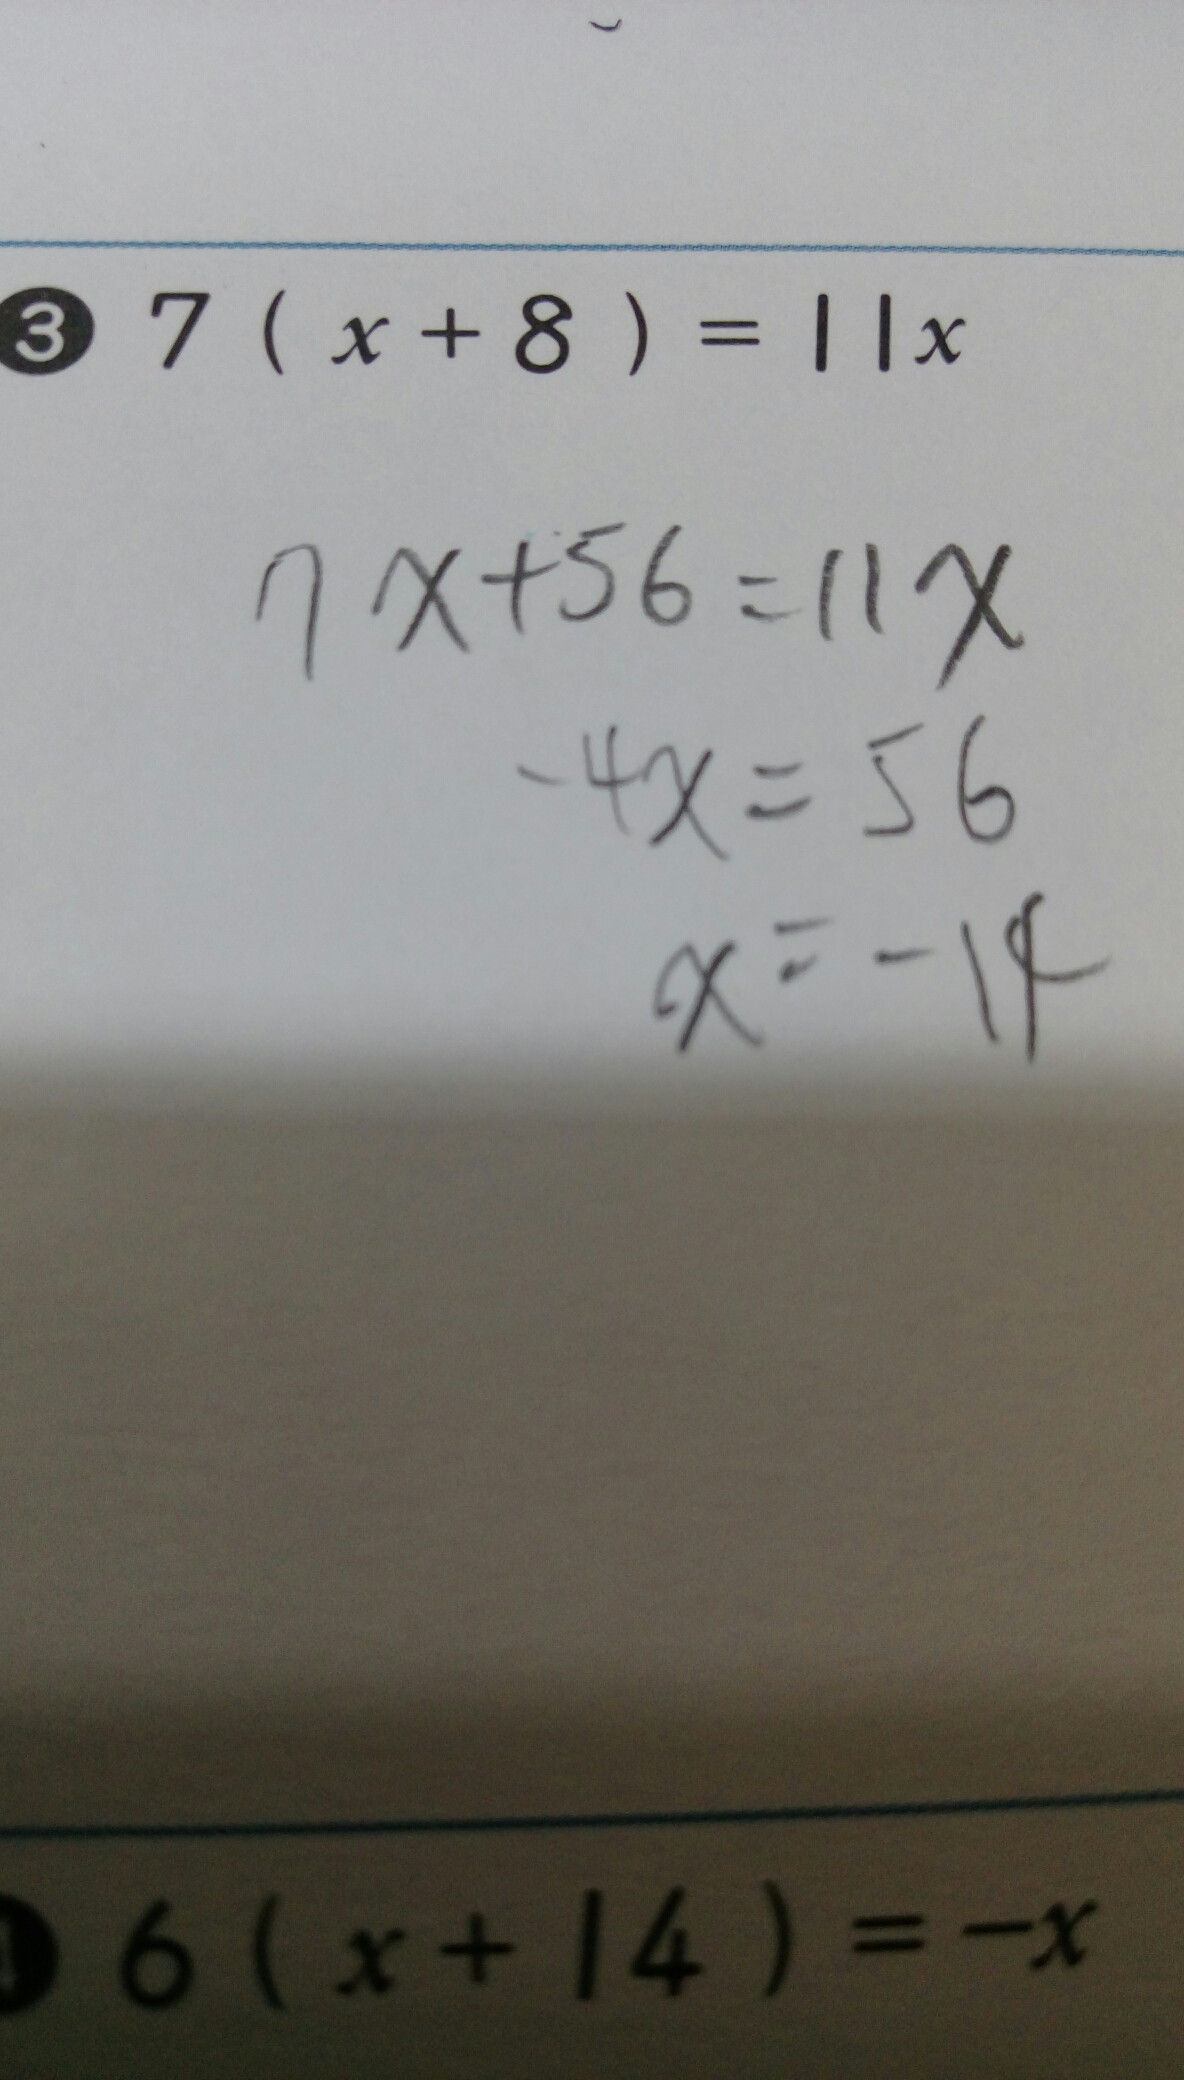 3 7 ( x + 8 ) = 11x
7x+56=11x
-4x=56
x=-14
6 ( x + 14 ) = -x